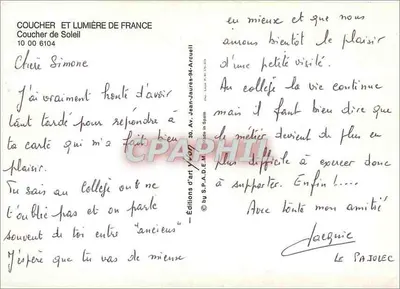 COUCHER ET LUMIÈRE DE FRANCE
Coucher de Soleil
10 00 6104
Chère Simone
J'ai vraiment honte d'avoir
tant tardé pour répondre à
ta carte qui m'a fait bien
plaisir.
Tu sais au collège on ne
t'oublie pas et on parle
souvent de toi entre "anciens"
J'espère que tu vas de mieux
en mieux et que nous
aurons bientôt le plaisir
d'une petite visite.
Au collège la vie continue
mais il faut bien dire que
le métier devient de plus en
plus difficile à exercer donc
à supporter. Enfin !....
Avec toute mon amitié
Jacquie
LE PAJOLEC
— Éditions d'art yvon 30, Av. Jean-Jaurès-94-Arcueil
© by S.P.A.D.E.M.